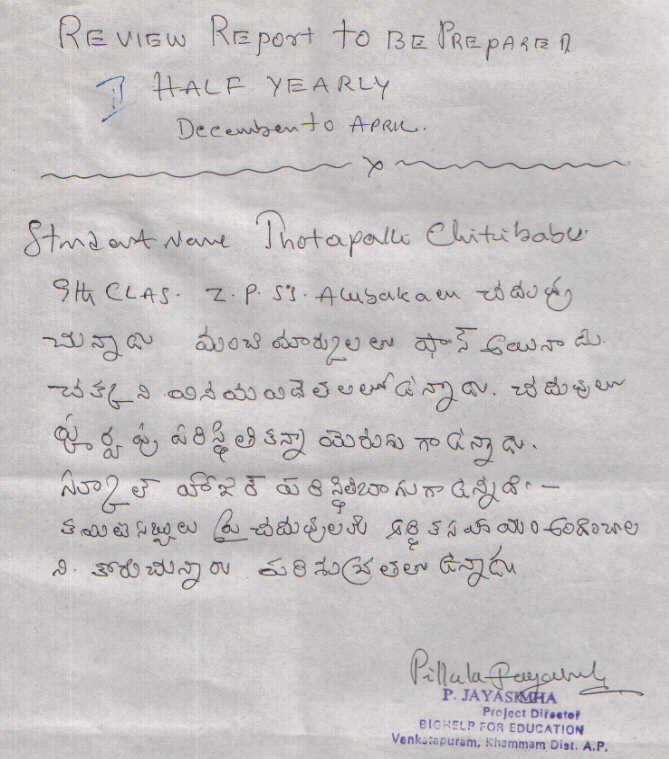 REVIEW Report to BE PREPARED
II HALF YEARLY
December to APRIL.
x
Student Name Thotapalli Chittibabu.
9th CLAS. Z. P. SS. Alubakam చదువు
చున్నాడు మంచి మార్కులలు పాస్ అయినాడు.
చక్కని వినయ విదేతలలో ఉన్నాడు. చదువులు
పూర్వపు పరిస్థితి కన్నా మెరుగు గా ఉన్నాడు.
స్కూల్ హాజర్ పరిస్థితి బాగుగా ఉన్నది -
కుటి సభ్యులు పై చదువులకు ఆర్థిక సహాయం ఉండాల
ని. కోరుచున్నారు పరిశుభ్రతలు ఉన్నాడు
Pillala Jayasimha
P. JAYASIMHA
Project Director
BIGHELP FOR EDUCATION
Venkatapuram, Khammam Dist. A.P.